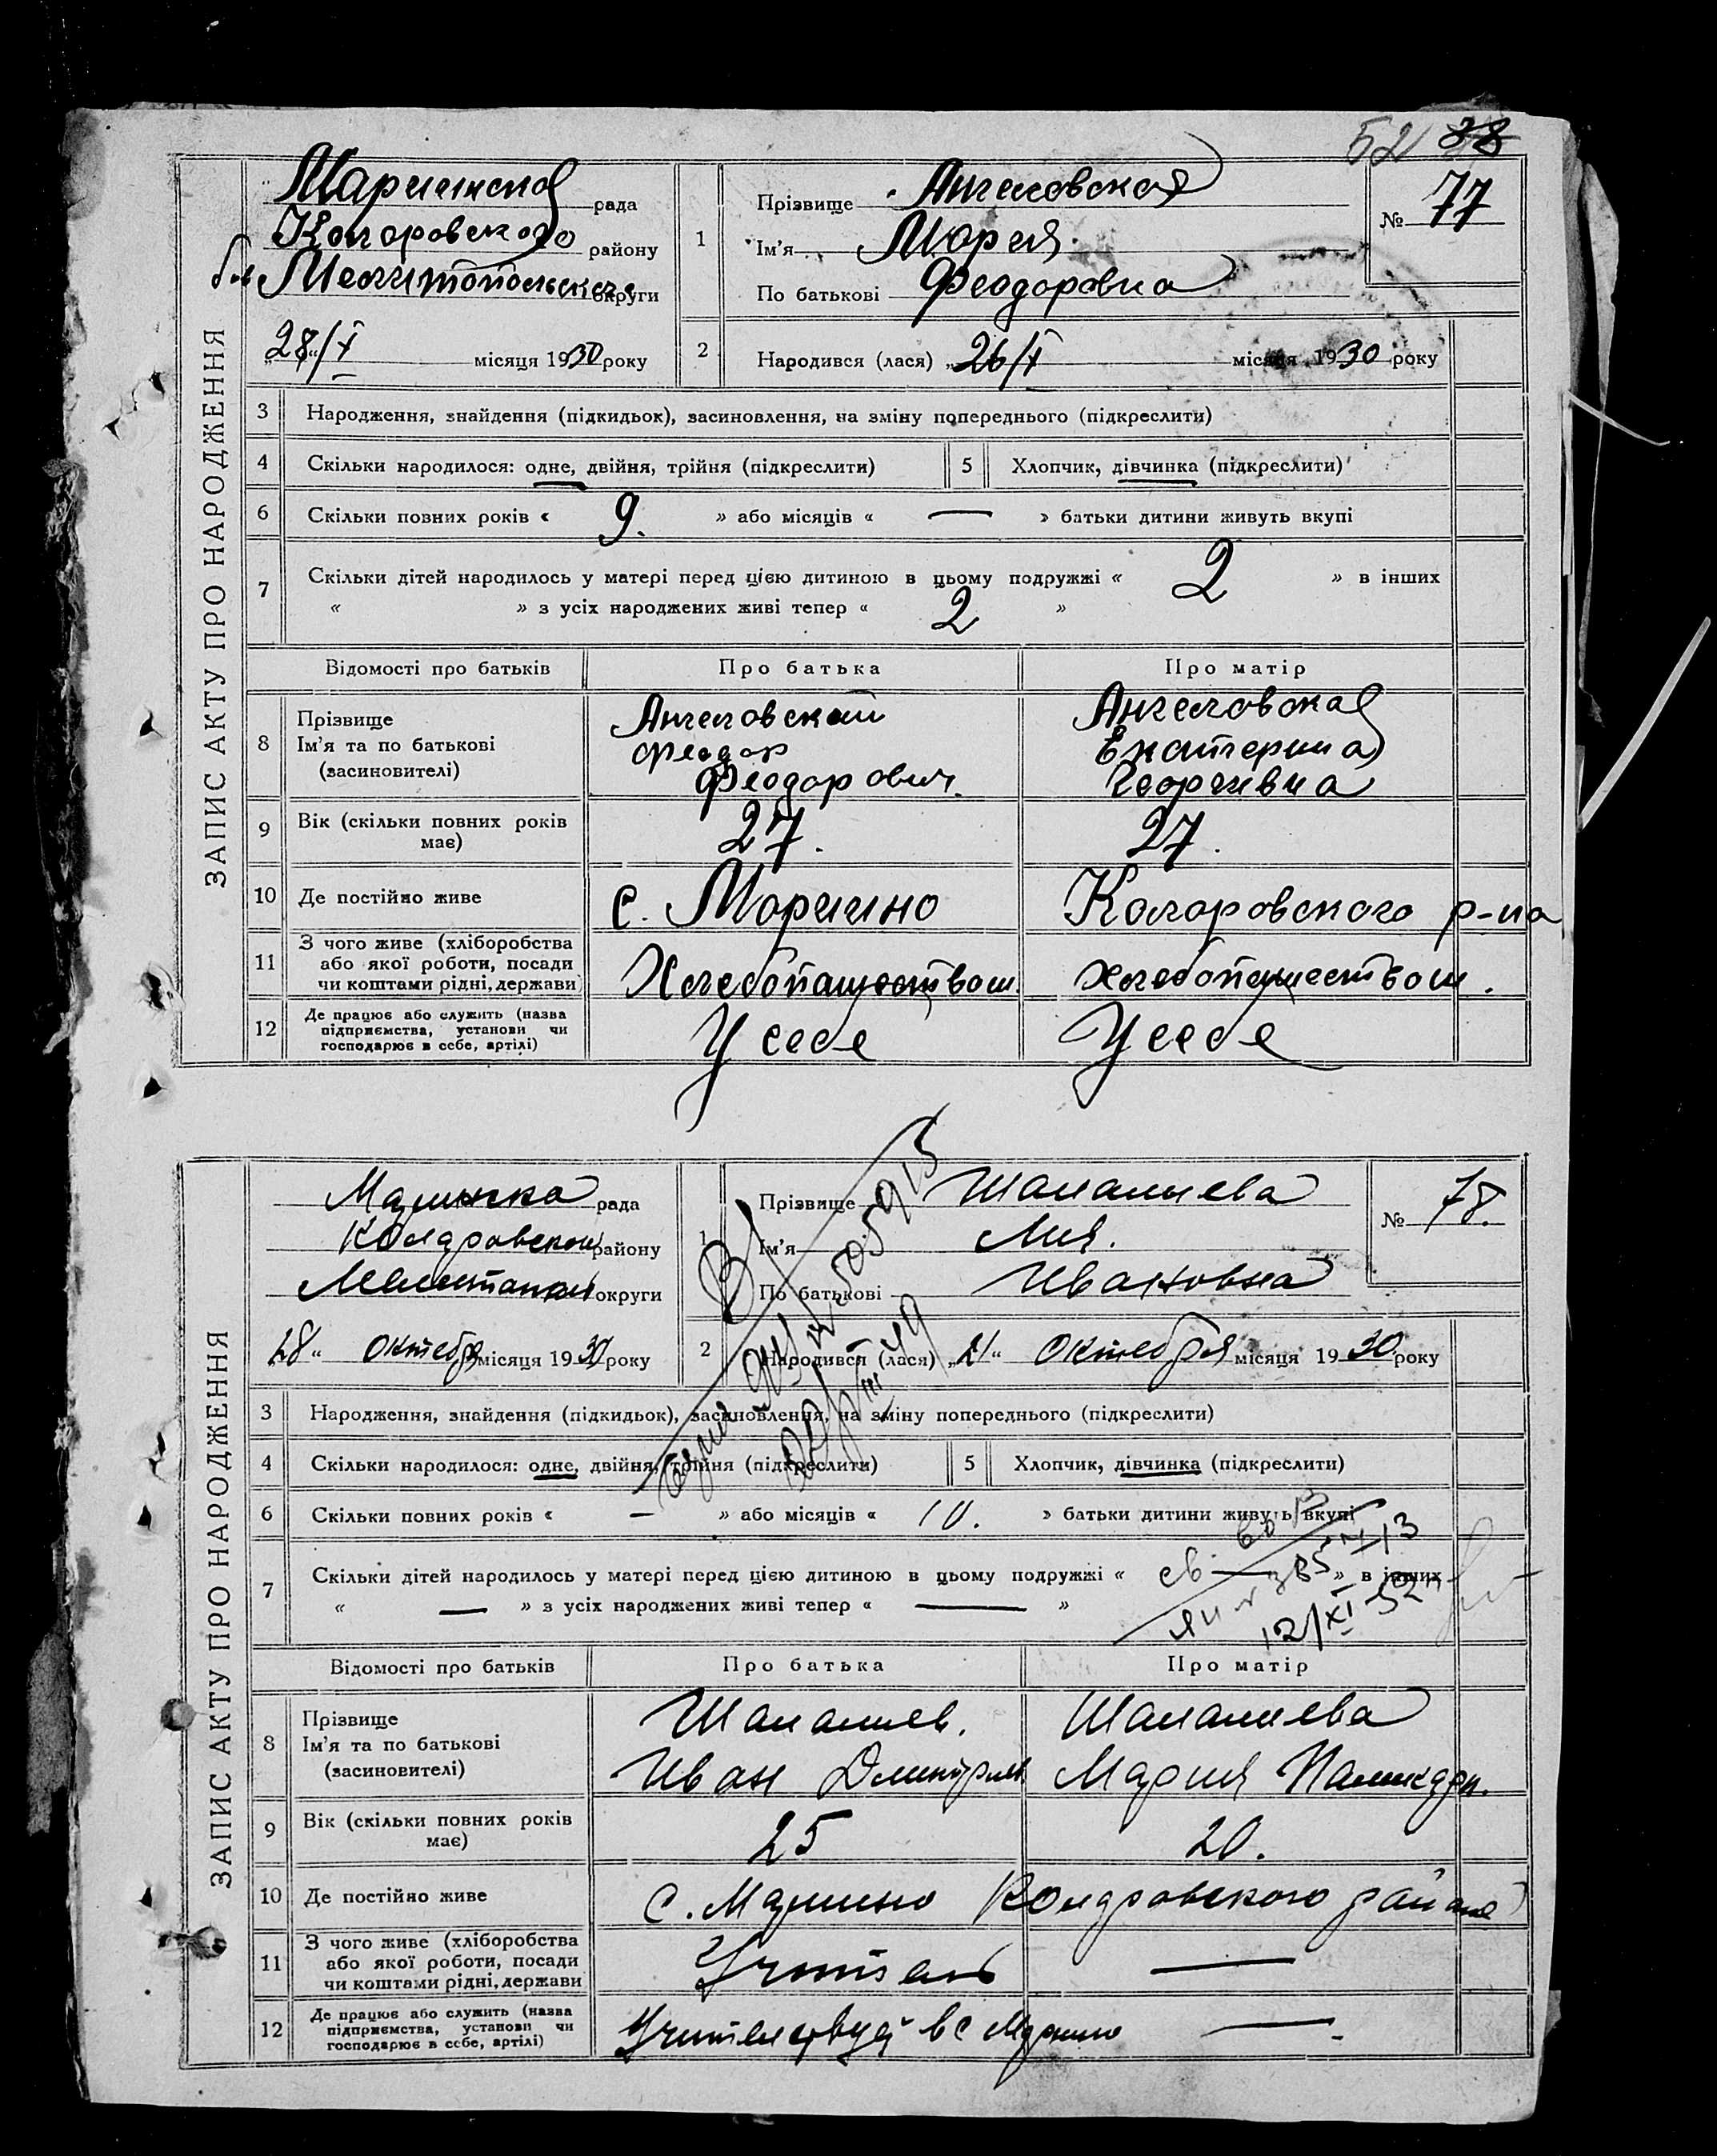 52 38
ЗАПИС АКТУ ПРО НАРОДЖЕННЯ
Мариинская рада
Коларовского району
быв Мелитопольского округи
„28“/X місяця 1930 року
1 Прізвище Ангеловская
Ім'я Мария
По батькові Феодоровна
№ 77
2 Народився (лася) „26/X місяця 1930 року
3 Народження, знайдення (підкидьок), засиновлення, на зміну попереднього (підкреслити)
4 Скільки народилося: одне, двійня, трійня (підкреслити) 5 Хлопчик, дівчинка (підкреслити)
6 Скільки повних років « 9. » або місяців « — » батьки дитини живуть вкупі
7 Скільки дітей народилось у матері перед цією дитиною в цьому подружжі « 2 » в інших
« » з усіх народжених живі тепер « 2 »
Відомості про батьків Про батька Про матір
8 Прізвище Ім'я та по батькові (засиновителі)
Ангеловский Феодор Феодорович.
Ангеловская Екатерина Георгивна
9 Вік (скільки повних років має) 27. 27.
10 Де постійно живе с. Мариино Коларовского р-на
11 З чого живе (хліборобства або якої роботи, посади чи коштами рідні, держави
Хлебопашеством Хлебопашеством.
12 Де працює або служить (назва підприємства, установи чи господарює в себе, артілі)
У себе У себе
ЗАПИС АКТУ ПРО НАРОДЖЕННЯ
рада
Коларовского району
округи
28“ Октября місяця 1930 року
1 Прізвище Шапалиева
Ім'я Лия.
По батькові Ивановна
№ 78.
2 Народився (лася) „21“ Октября місяця 1930 року
3 Народження, знайдення (підкидьок), засиновлення, на зміну попереднього (підкреслити)
4 Скільки народилося: одне, двійня, трійня (підкреслити) 5 Хлопчик, дівчинка (підкреслити)
6 Скільки повних років « — » або місяців « 10. » батьки дитини живуть вкупі
7 Скільки дітей народилось у матері перед цією дитиною в цьому подружжі « — » в інших
« — » з усіх народжених живі тепер « — »
12/XI 52
Відомості про батьків Про батька Про матір
8 Прізвище Ім'я та по батькові (засиновителі)
Шапалиев. Иван
Шапалиева Мария
9 Вік (скільки повних років має) 25 20.
10 Де постійно живе с. Марино Коларовского района
11 З чого живе (хліборобства або якої роботи, посади чи коштами рідні, держави
Учитель —
12 Де працює або служить (назва підприємства, установи чи господарює в себе, артілі)
в с Марино —